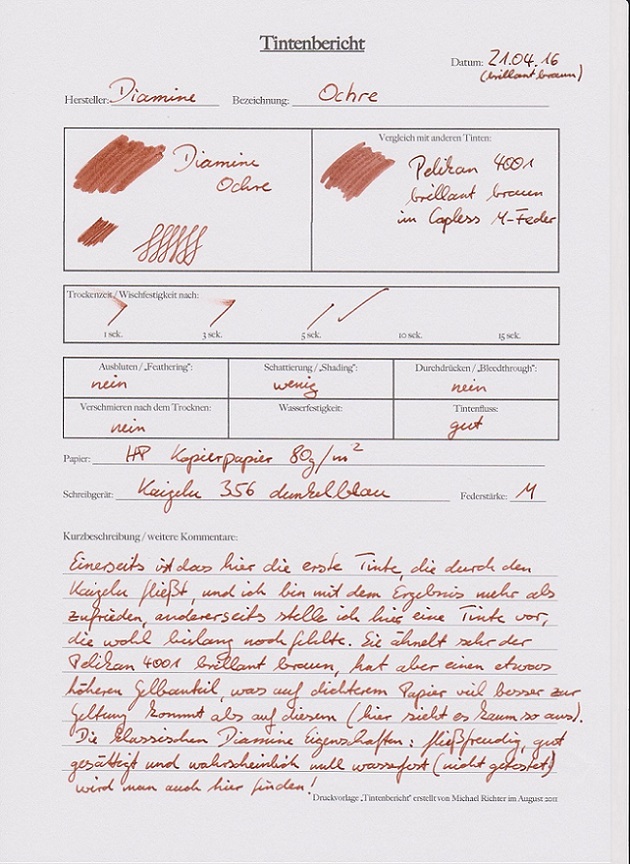 Tintenbericht
Datum: 21.04.16
(brillant braun)
Hersteller: Diamine Bezeichnung: Ochre
Diamine
Ochre
Vergleich mit anderen Tinten:
Pelikan 4001
brillant braun
im Capless M-Feder
Trockenzeit / Wischfestigkeit nach:
1 sek. 3 sek. 5 sek. 10 sek. 15 sek.
Ausbluten / „Feathering": Schattierung / „Shading": Durchdrücken / „Bleedthrough":
nein wenig nein
Verschmieren nach dem Trocknen: Wasserfestigkeit: Tintenfluss:
nein gut
Papier: HP Kopierpapier 80g/m²
Schreibgerät: Kaigelu 356 dunkelblau Federstärke: M
Kurzbeschreibung / weitere Kommentare:
Einerseits ist das hier die erste Tinte, die durch den
Kaigelu fließt, und ich bin mit dem Ergebnis mehr als
zufrieden, andererseits stelle ich hier eine Tinte vor,
die wohl bislang noch fehlte. Sie ähnelt sehr der
Pelikan 4001 brillant braun, hat aber einen etwas
höheren Gelbanteil, was auf dichterem Papier viel besser zur
Geltung kommt als auf diesem (hier sieht es kaum so aus).
Die klassischen Diamine Eigenschaften: fließfreudig, gut
gesättigt und wahrscheinlich null wasserfest (nicht getestet)
wird man auch hier finden!
Druckvorlage „Tintenbericht" erstellt von Michael Richter im August 2011